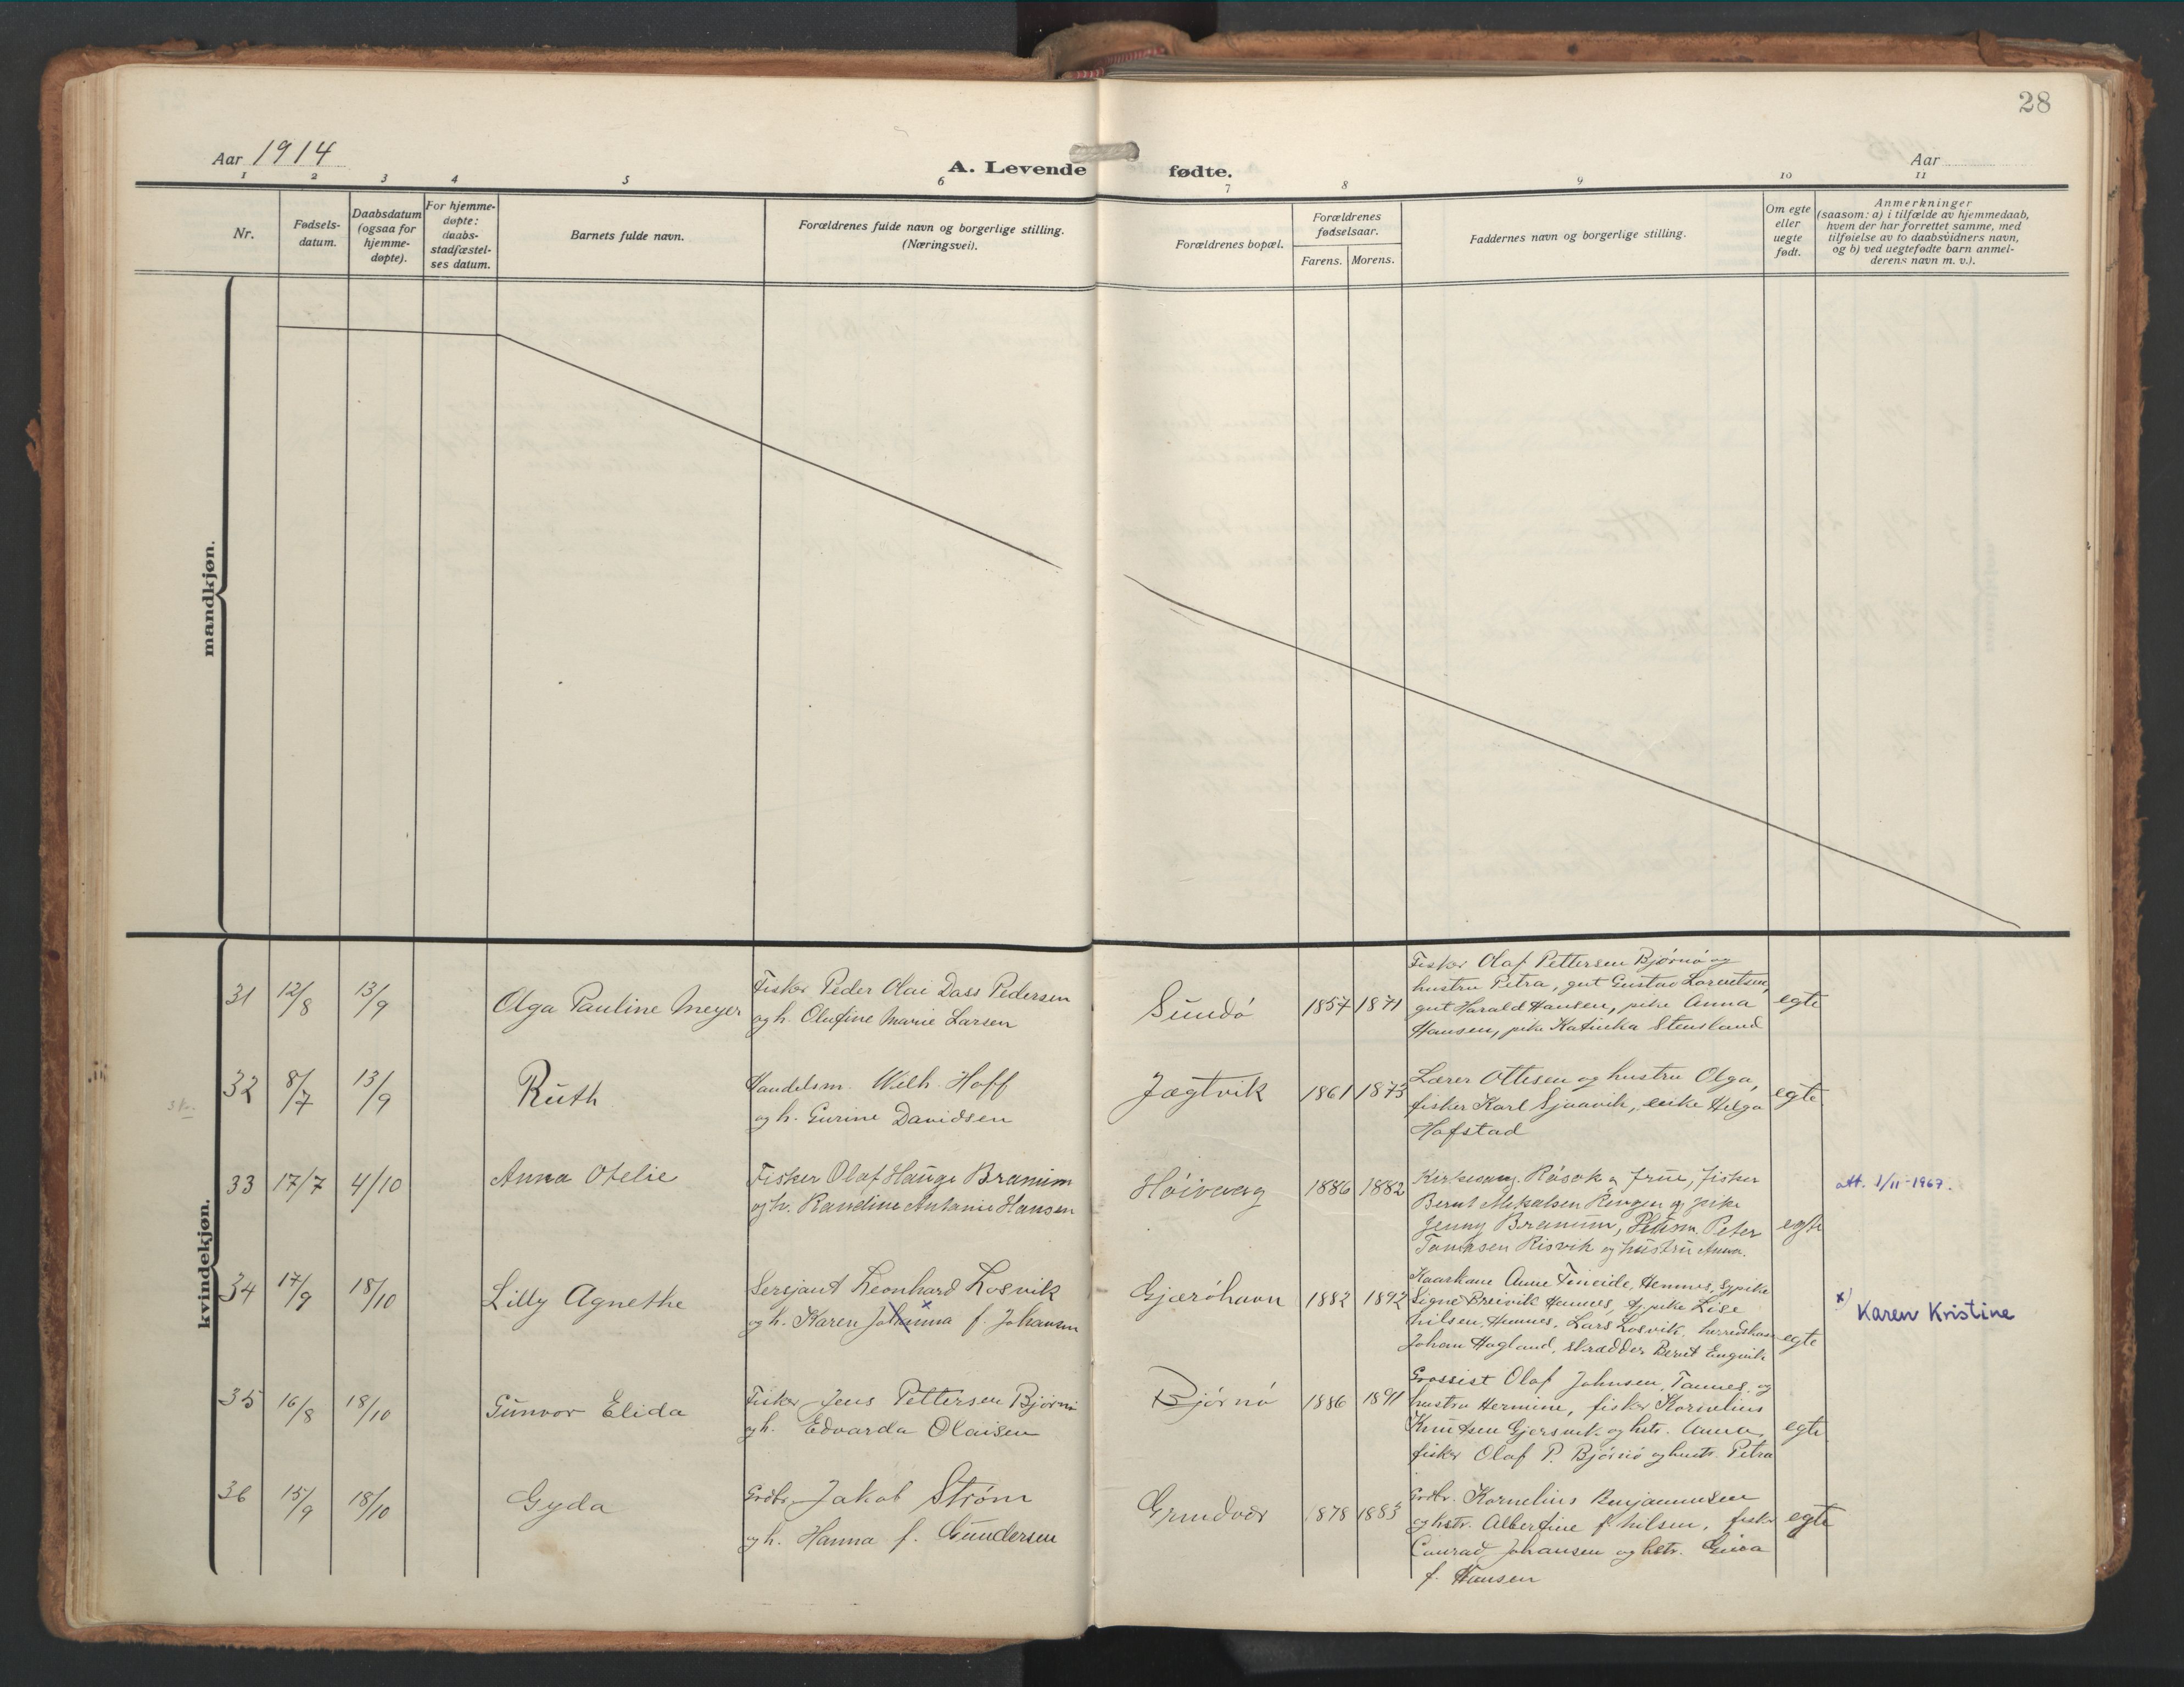 28
Aar 1914
A. Levende fødte.
Aar
1 2 3 4 5 6 7 8 9 10 11
Nr.
Fødsels-
datum.
Daabsdatum
(ogsaa for
hjemme-
døpte).
For hjemme-
døpte:
daabs-
stadfæstel-
ses datum.
Barnets fulde navn.
Forældrenes fulde navn og borgerlige stilling.
(Næringsvei).
Forældrenes bopæl.
Forældrenes
fødselsaar.
Farens. Morens.
Faddernes navn og borgerlige stilling.
Om egte
eller
uegte
født.
Anmerkninger
(saasom: a) i tilfælde av hjemmedaab,
hvem der har forrettet samme, med
tilføielse av to daabsvidners navn,
og b) ved uegtefødte barn anmel-
derens navn m. v.).
mandkjøn.
kvindekjøn.
31 12/8 13/9 Olga Pauline Meyer
Fisker Peder Olai Dass Pedersen
og h. Olufine Marie Larsen
Sundö 1857 1871
Fisker Olaf Pettersen Bjørnø og
hustru Petra, gut Gustav Lorentsen,
gut Harald Hansen, pike Anna
Hansen, pike Katinka Stensland
egte
32 8/7 13/9 Ruth
Handelsm. Wilh. Hoff
og h. Gurine Davidsen
Jægtvik 1861 1873
Lærer Ottesen og hustru Olga,
fisker Karl Sjaavik, enke Helga
Hofstad
egte
33 17/7 4/10 Anna Otelie
Fisker Olaf Hauge Bramim
og h. Randine Antonie Hansen
Høivaag 1886 1882
Kirkesang. Råsok og frue, fisker
Bernt Mikalsen Ringen og pike
Jenny Bramum, Peter
Tomasen Risvik og hustru Anna.
egte
att. 1/11-1967.
34 17/9 18/10 Lilly Agnethe
Sersjant Leonhard Losvik
og h. Karen Johanna x f. Johansen
Gjærøhavn 1882 1892
Anne Fineide, Hemnes, sypike
Signe Breivik Hemnes, sypike Lise
Nilsen, Hemnes, Lars Losvik,
Johan Hagland, skrædder Bernt Engvik
egte
x) Karen Kristine
35 16/8 18/10 Gunvor Elida
Fisker Jens Pettersen Bjørnø
og h. Edvarda Olaisen
Bjørnø 1886 1891
Grossist Olaf Johnsen, Tonnes, og
hustru Hermine, fisker Kornelius
Knutsen Gjersvik og hstr. Anna,
fisker Olaf P. Bjørnø og hustr. Petra
egte
36 15/9 18/10 Gyda
Grdbr. Jakob Strøm
og h. Hanna f. Gundersen
Grundvær 1878 1883
Grdbr. Kornelius Benjaminsen
og hstr. Albertine f. Nilsen, fisker
Conrad Johansen og hstr.
f. Hansen
egte